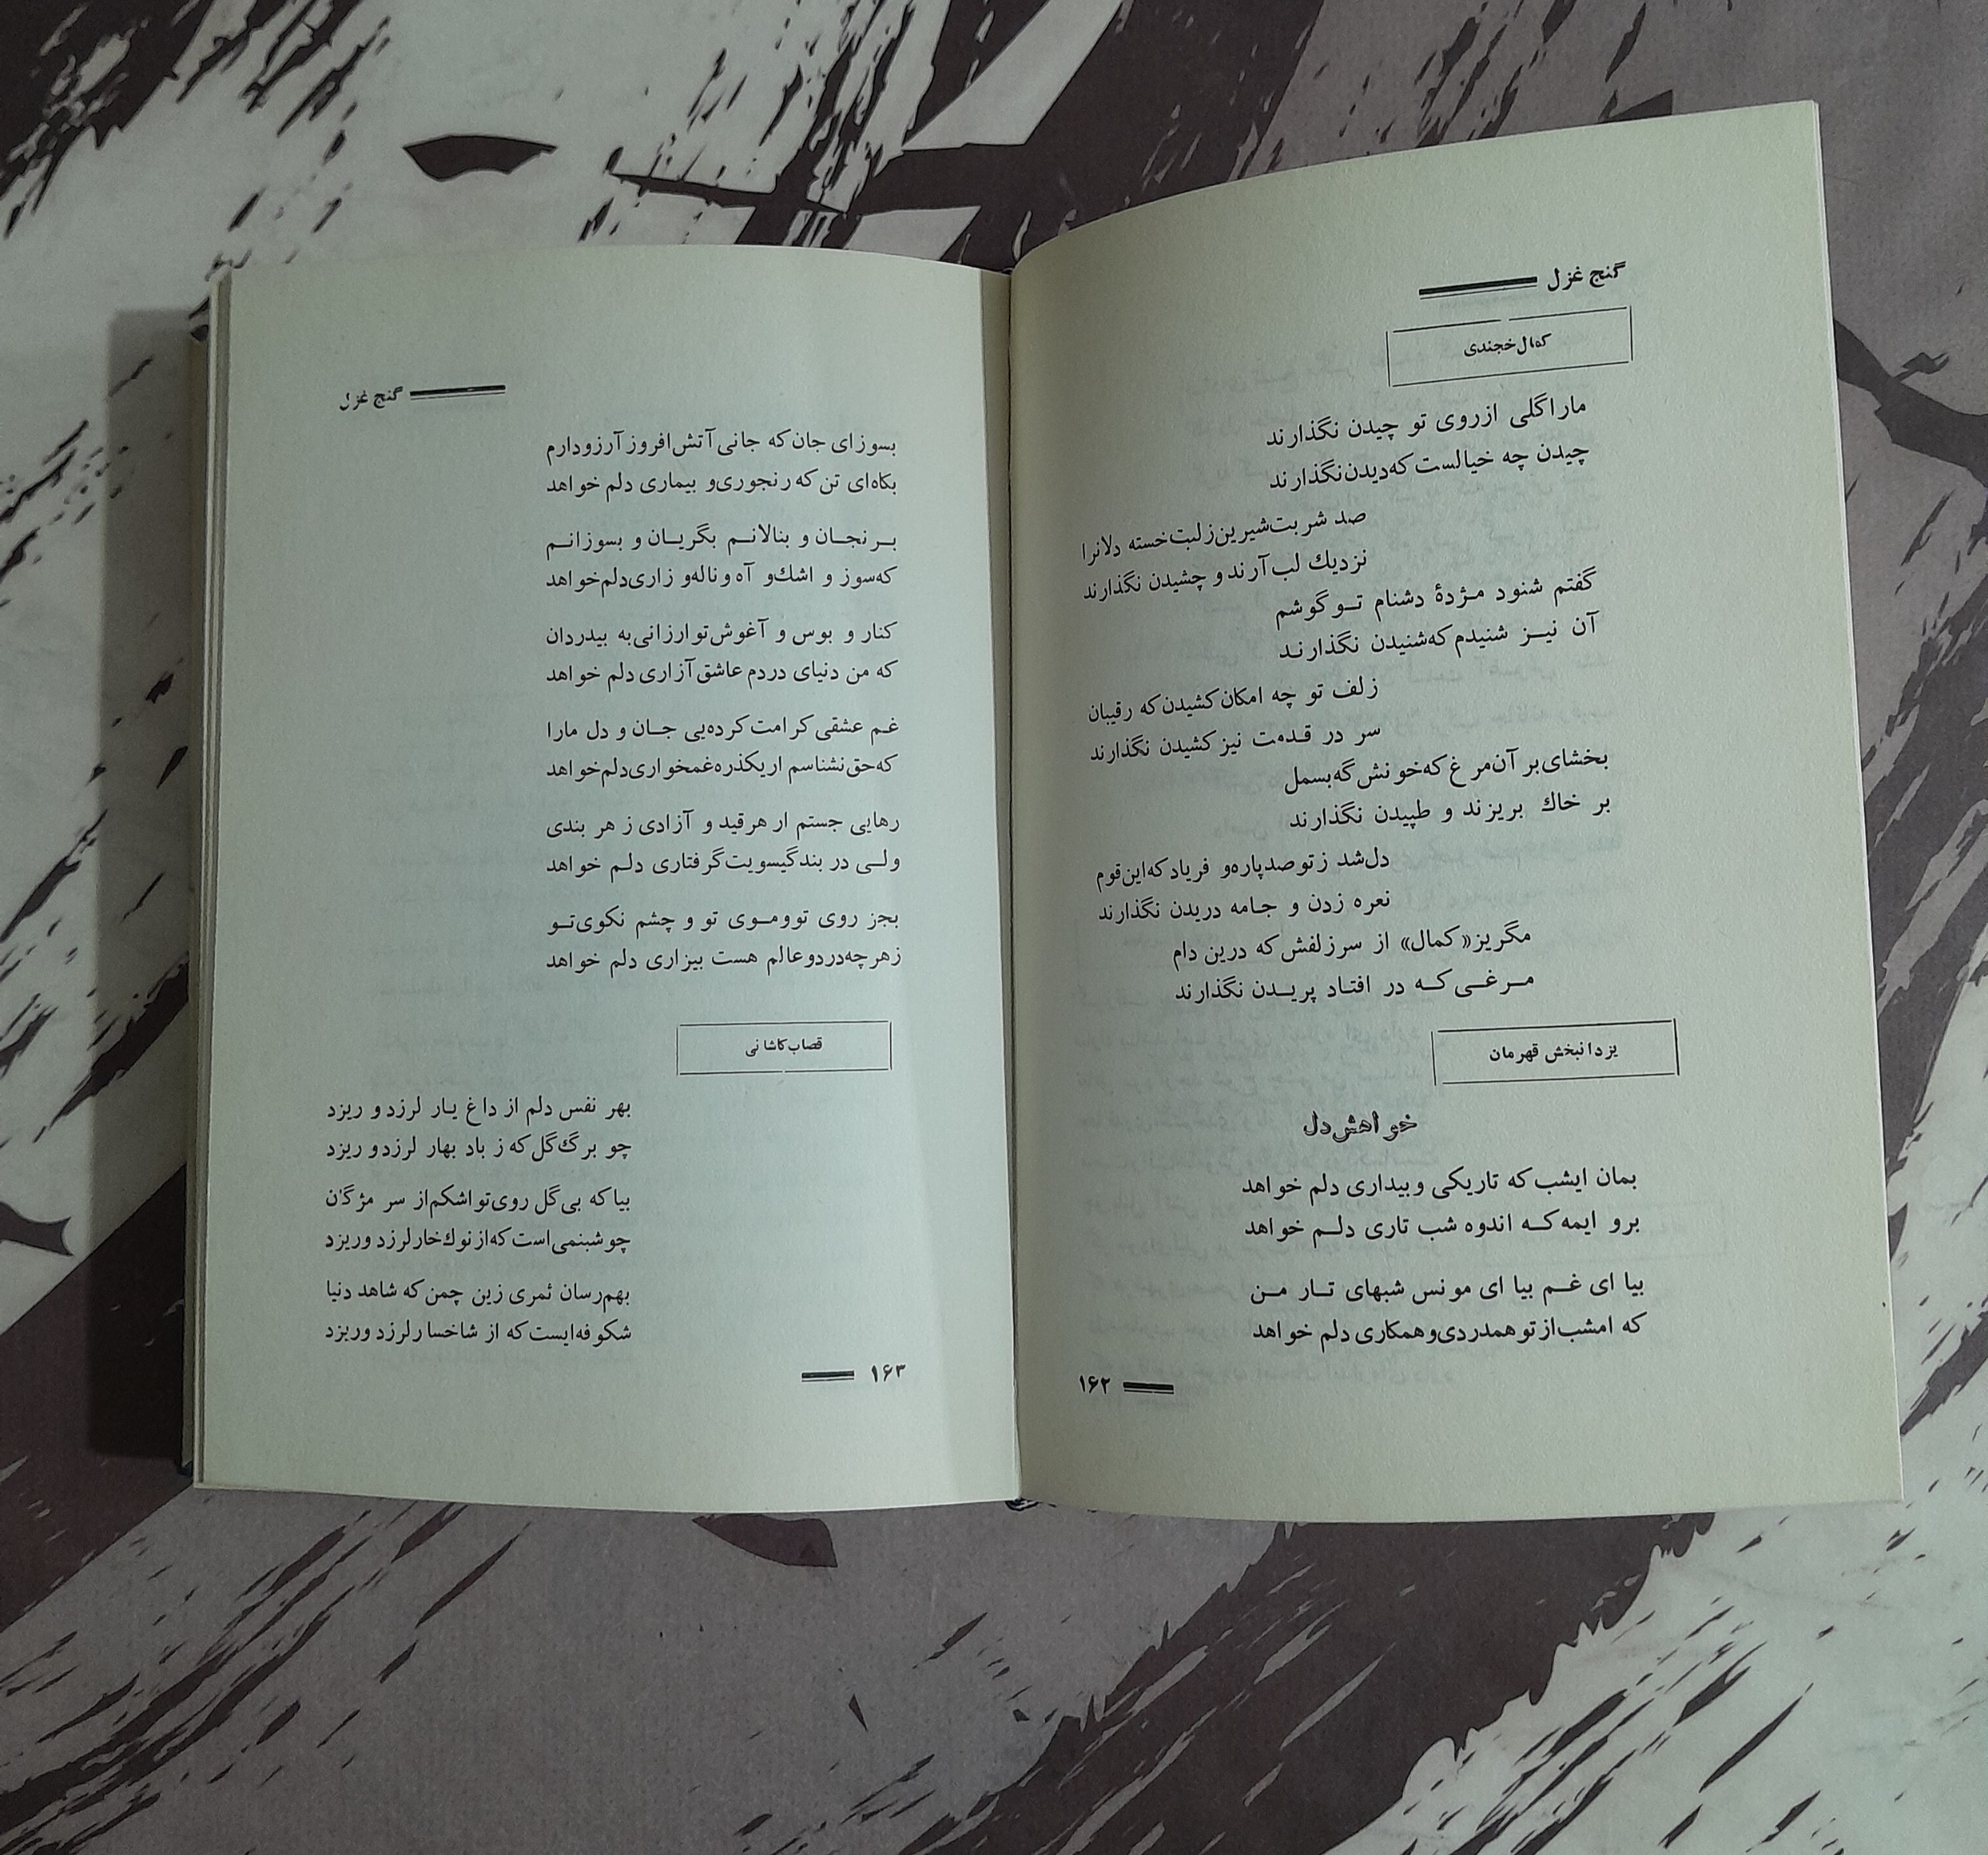 گنج غزل
کمال خجندی
ما را گلی از روی تو چیدن نگذارند
چیدن چه خیالست که دیدن نگذارند
صد شربت شیرین ز لبت خسته دلانرا
نزدیك لب آرند و چشیدن نگذارند
گفتم شنود مژدهٔ دشنام تو گوشم
آن نیز شنیدم که شنیدن نگذارند
زلف تو چه امکان کشیدن که رقیبان
سر در قدمت نیز کشیدن نگذارند
بخشای بر آن مرغ که خونش گه بسمل
بر خاك بریزند و طپیدن نگذارند
دل شد ز تو صد پاره و فریاد که این قوم
نعره زدن و جامه دریدن نگذارند
مگریز «کمال» از سر زلفش که درین دام
مرغی که در افتاد پریدن نگذارند
یزدانبخش قهرمان
خواهش دل
بمان ایشب که تاریکی و بیداری دلم خواهد
برو ایمه که اندوه شب تاری دلم خواهد
بیا ای غم بیا ای مونس شبهای تار من
که امشب از تو همدردی و همکاری دلم خواهد
۱۶۲
گنج غزل
بسوز ای جان که جانی آتش افروز آرزو دارم
بکاه ای تن که رنجوری و بیماری دلم خواهد
برنجان و بنالانم بگریان و بسوزانم
که سوز و اشك و آه و ناله و زاری دلم خواهد
کنار و بوس و آغوش تو ارزانی به بیدردان
که من دنیای دردم عاشق آزاری دلم خواهد
غم عشقی کرامت کرده‌یی جان و دل ما را
که حق نشناسم ار یکذره غمخواری دلم خواهد
رهایی جستم ار هر قید و آزادی ز هر بندی
ولی در بند گیسویت گرفتاری دلم خواهد
بجز روی تو و موی تو و چشم نکوی تو
ز هر چه در دو عالم هست بیزاری دلم خواهد
قصاب کاشانی
بهر نفس دلم از داغ یار لرزد و ریزد
چو برگ گل که ز باد بهار لرزد و ریزد
بیا که بی گل روی تو اشکم از سر مژگان
چو شبنمی است که از نوك خار لرزد و ریزد
بهم رسان ثمری زین چمن که شاهد دنیا
شکوفه ایست که از شاخسار لرزد و ریزد
۱۶۳